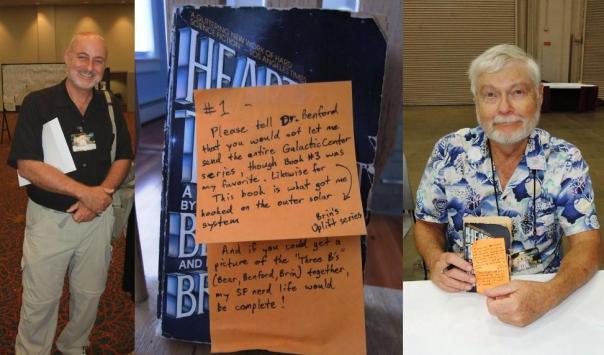 A GLITTERING NEW WORK OF HARD
SCIENCE FICTION - LOS ANGELES TIMES
HEART
A
BY
AND
#1 -
Please tell Dr. Benford
that you would not let me
send the entire Galactic Center
series, though Book #3 was
my favorite. Likewise for
This book is what got me
hooked on the outer solar
system
Brin's
Uplift series
And if you could get a
picture of the "Three B's
(Bear, Benford, Brin) together,
my SF nerd life would
be complete!